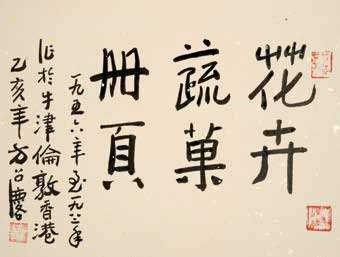 花卉
蔬菓
冊頁
一九五六年至一九八二年
作於牛津倫敦香港
乙亥年方召麐